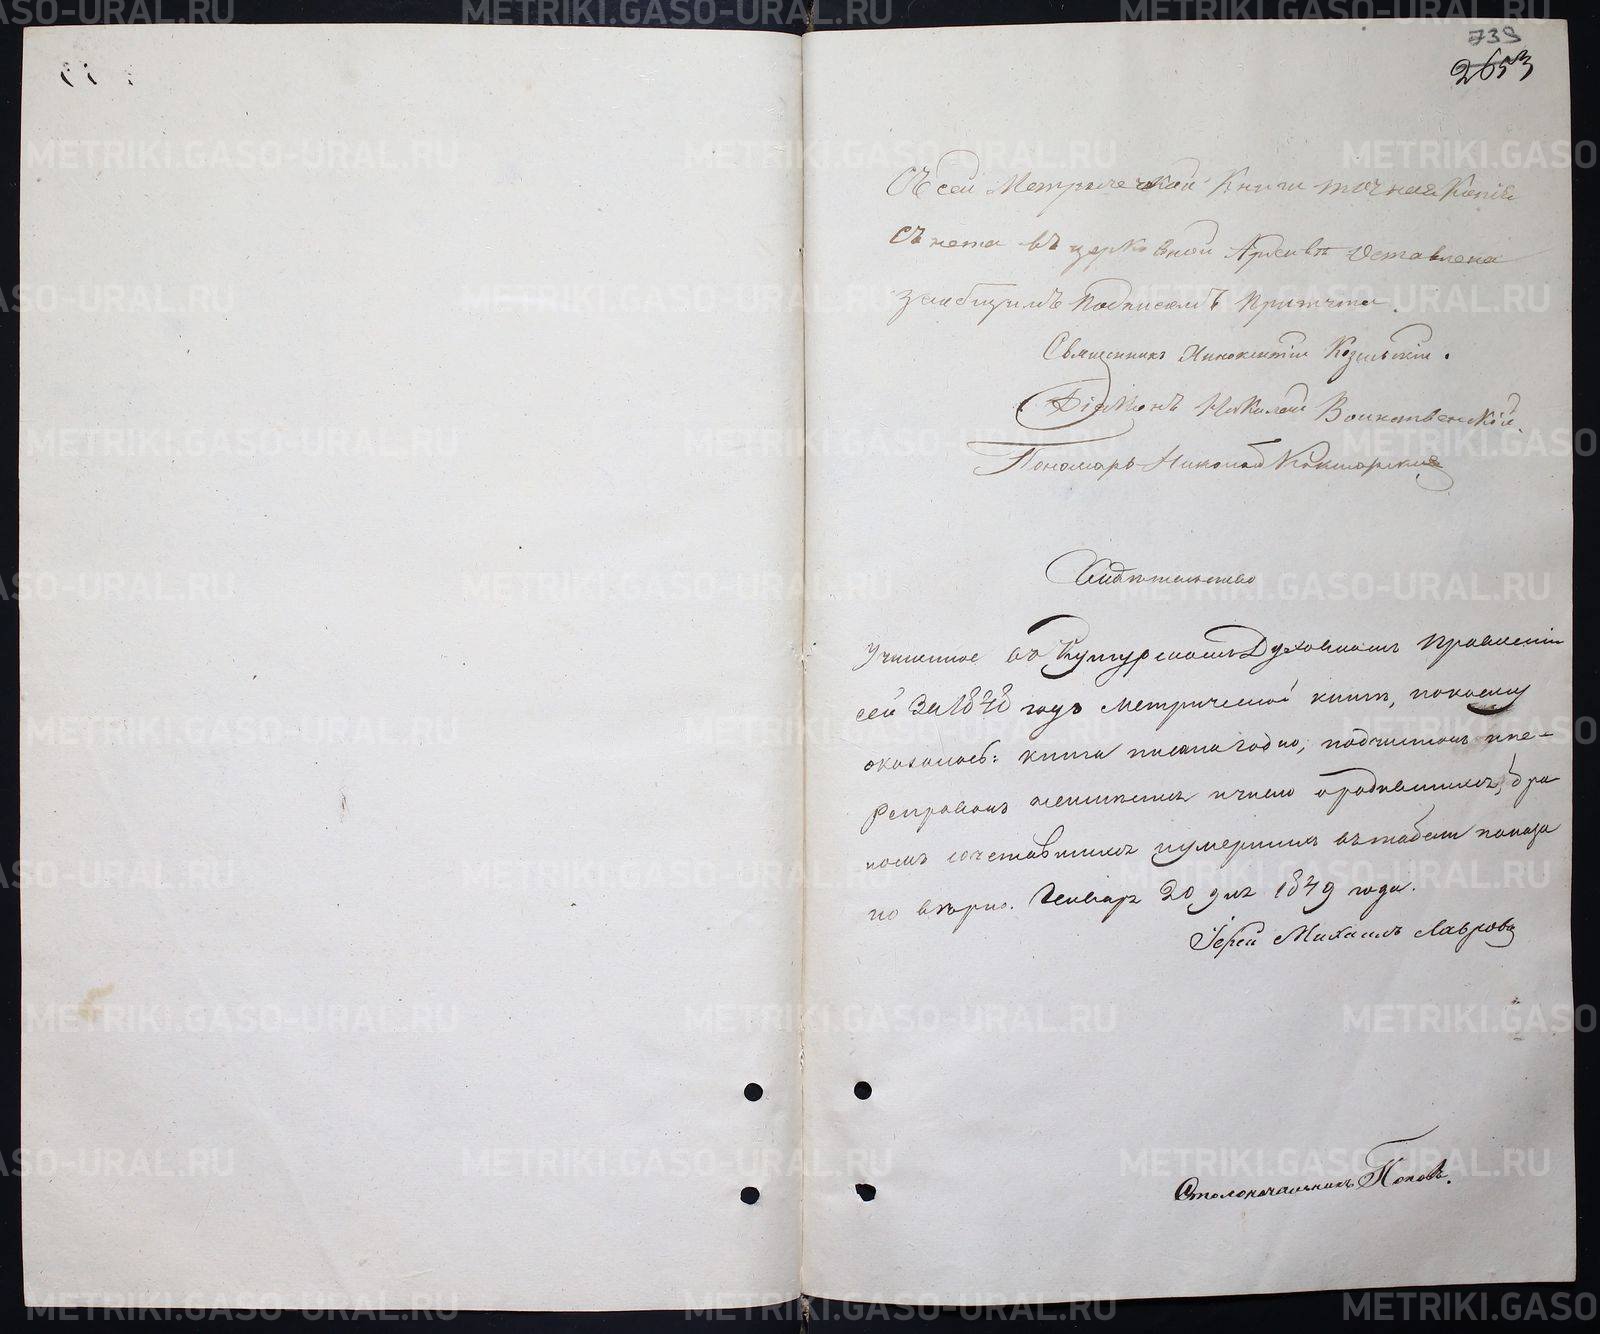 739
2653
Съ сей Метрической Книги точная Копія
съ нета въ церковной Архивѣ Оставлена
за общимъ Подписомъ Притчта.
Священникъ Иннокентій Козельскій.
Діаконъ Николай Воинственскій.
Пономарь Николай
Свидѣтельство
Учиненное въ Кунгурскомъ Духовномъ Правленіи
сей За 1848 годъ метрической книгѣ, по коему
оказалось: книга писана годно, подчистокъ и пе-
реправокъ не имѣется и число о родившихся, бра
комъ сочетавшихся и умершихъ въ табели показа
но вѣрно. Генваря 20 дня 1849 года.
Іерей Михаилъ Лавровъ
Столоначальникъ Поповъ.
METRIKI.GASO-URAL.RU